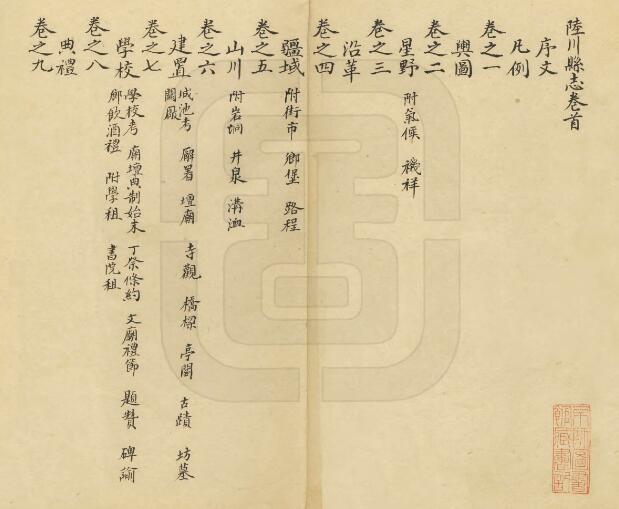 陸川縣志卷首
序文
凡例
卷之一
輿圖
卷之二
星野 附氣候 禨祥
卷之三
沿革
卷之四
疆域 附街市 鄉堡 路程
卷之五
山川 附岩峒 井泉 溝洫
卷之六
建置 城池考 廨署 壇廟 寺觀 橋樑 亭閣 古蹟 坊墓
關廠
卷之七
學校 學校考 廟壇典制始末 丁祭條約 文廟禮節 題贊 碑諭
鄉飲酒禮 附學租 書院租
卷之八
典禮
卷之九